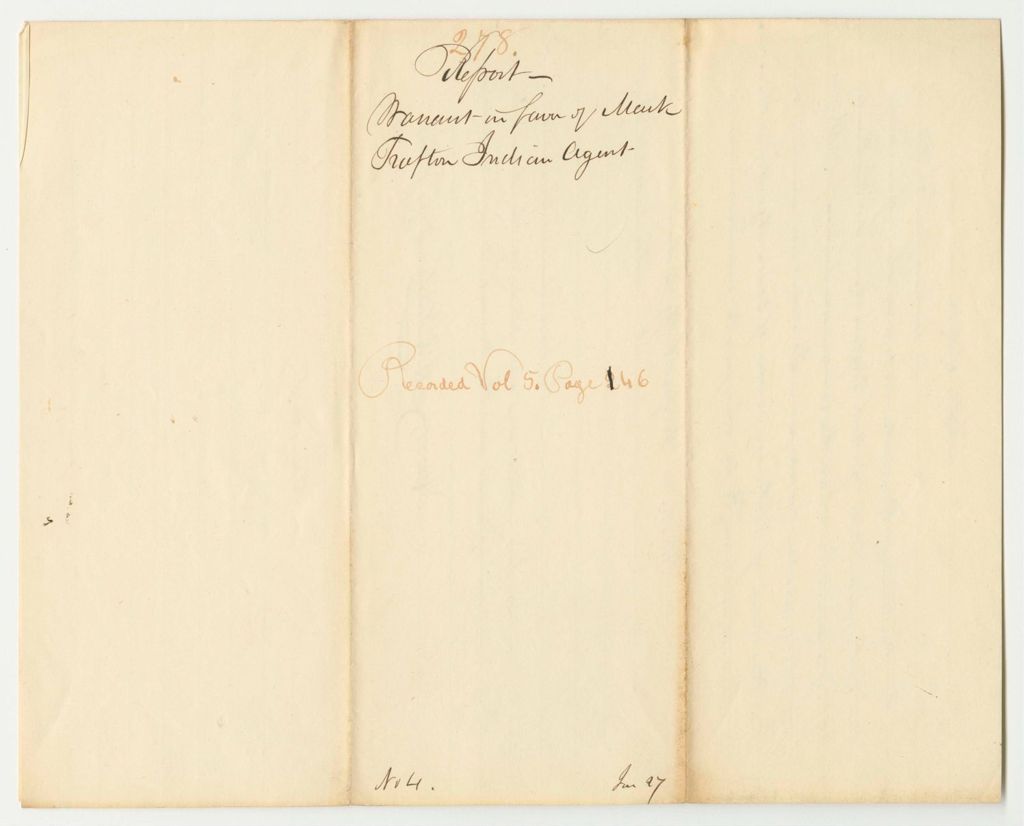 278.
Report —
Warrant in favor of Mark
Trafton Indian Agent
Recorded Vol 5. Page 146
No 4.
Jan 27